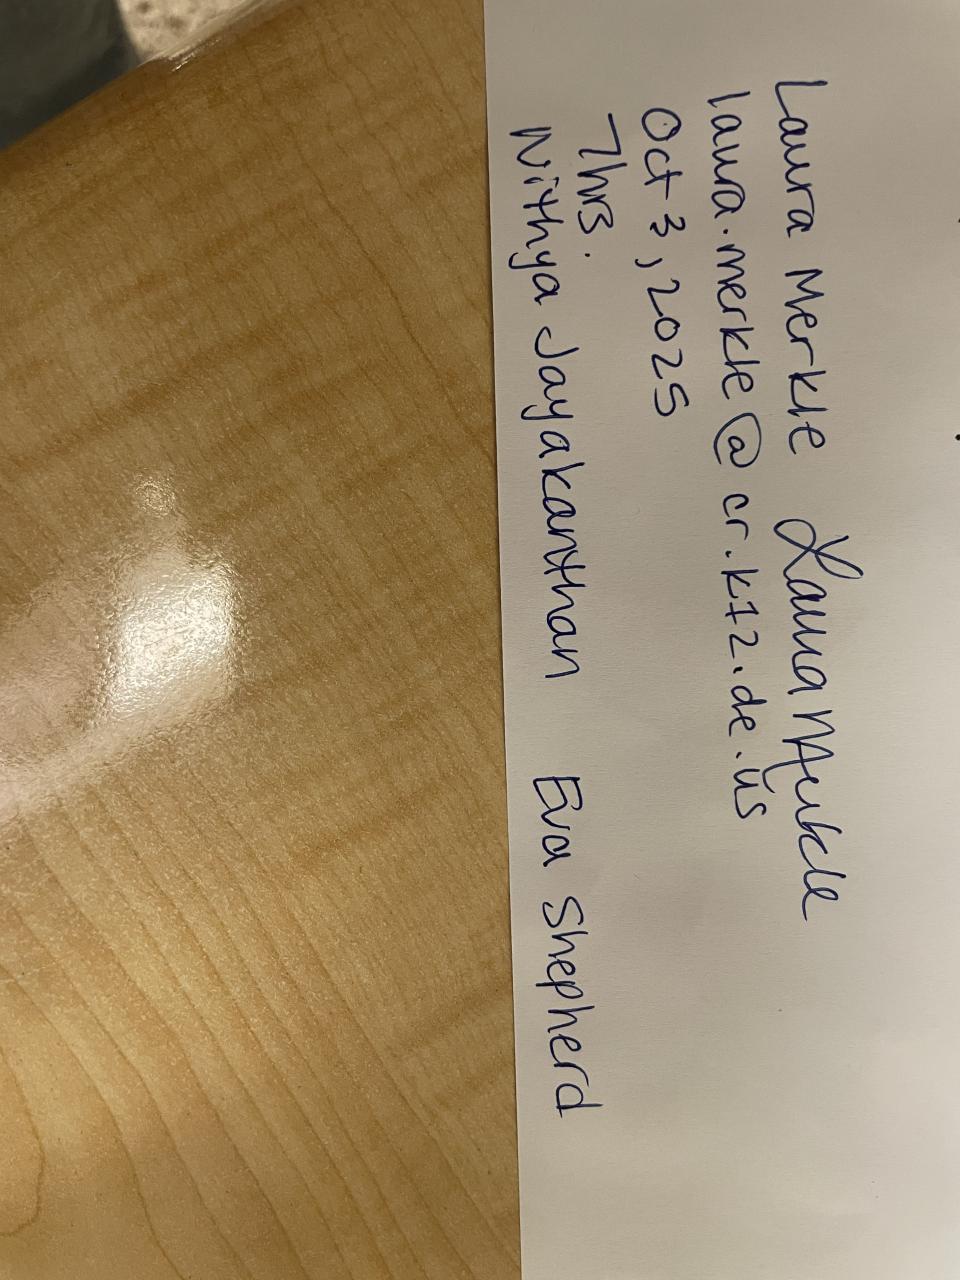 Laura Merkle Laura Merkle
laura.merkle@cr.k12.de.us
Oct 3, 2025
7hrs.
Nithya Jayakanthan Eva Shepherd